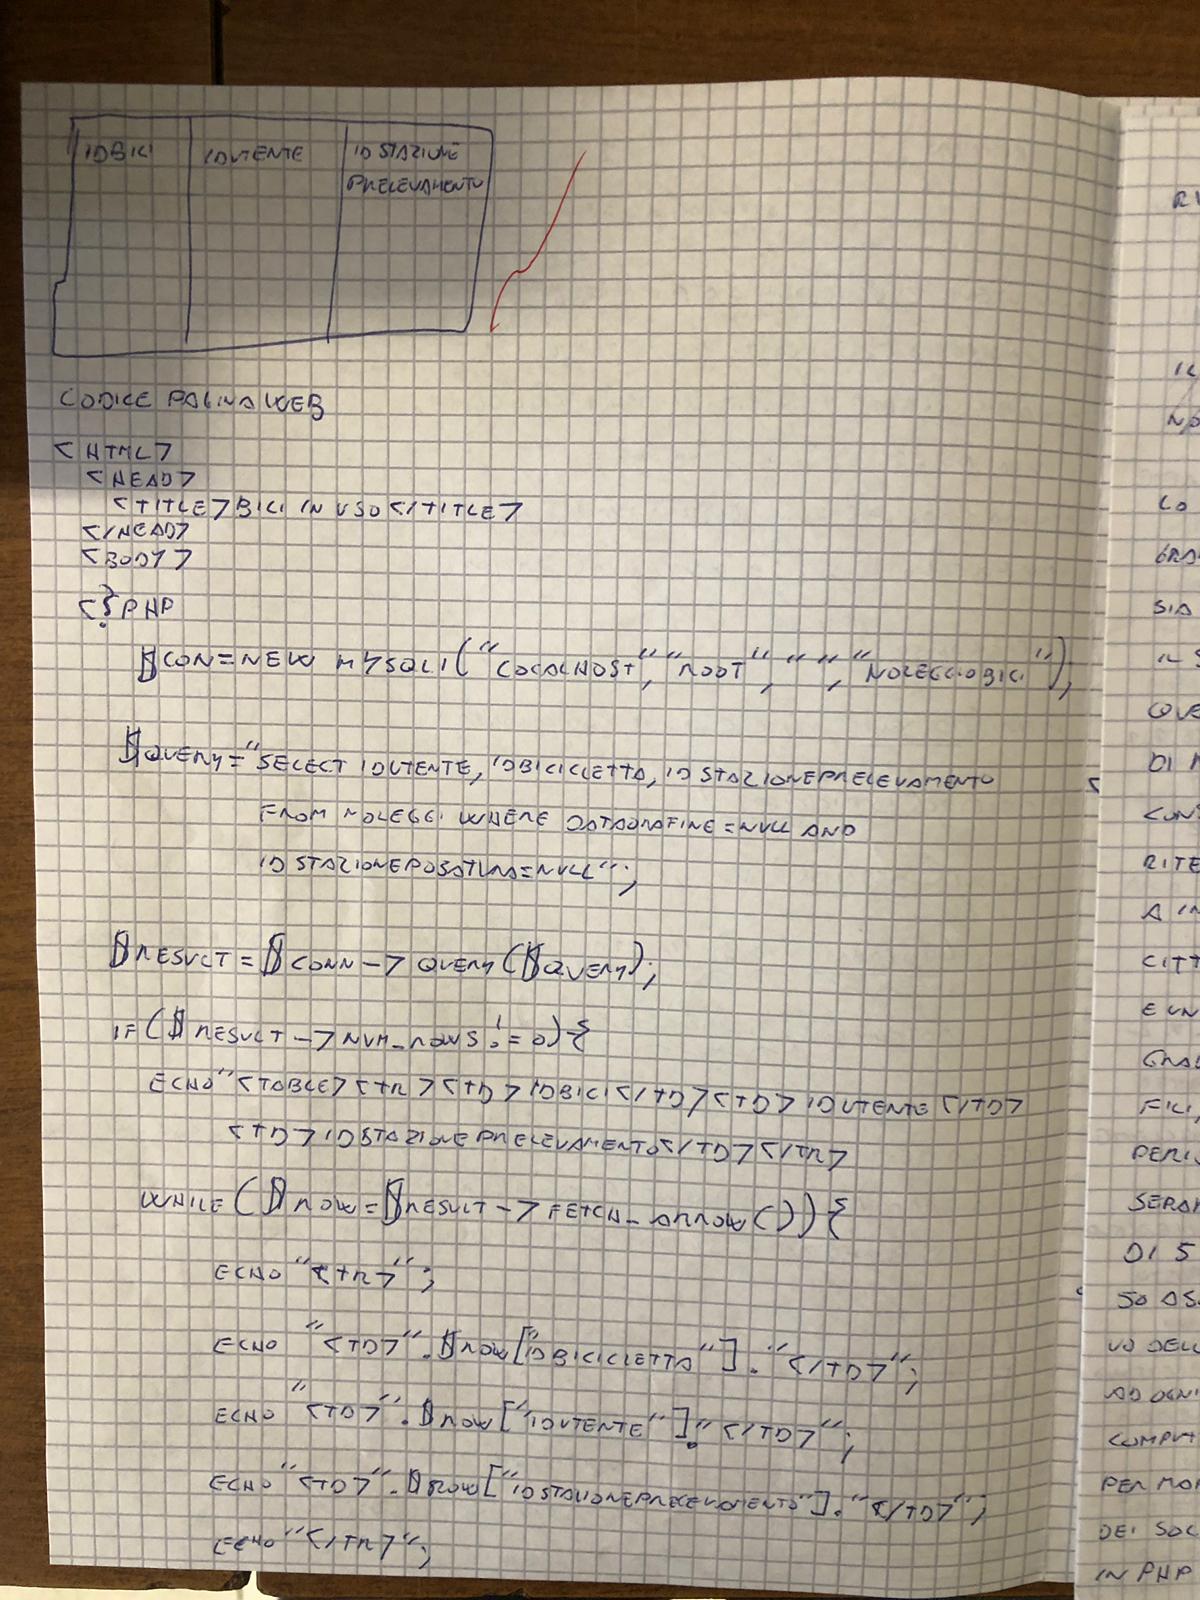 IDBICI IDUTENTE ID STAZIONE
PRELEVAMENTO
CODICE PAGINA WEB
<HTML>
<HEAD>
<TITLE>BICI IN USO</TITLE>
</HEAD>
<BODY>
<?PHP
$CON=NEW MYSQLI("LOCALHOST","ROOT","","NOLEGGIOBICI");
$QUERY="SELECT IDUTENTE, IDBICICLETTA, IDSTAZIONEPRELEVAMENTO
FROM NOLEGGI WHERE DATAORAFINE=NULL AND
IDSTAZIONEPOSATURA=NULL";
$RESULT=$CONN->QUERY($QUERY);
IF($RESULT->NUM_ROWS!=0){
ECHO"<TABLE><TR><TD>IDBICI</TD><TD>IDUTENTE</TD>
<TD>IDSTAZIONEPRELEVAMENTO</TD></TR>
WHILE($ROW=$RESULT->FETCH_ARROW()){
ECHO"<TR>";
ECHO "<TD>".$ROW["IDBICICLETTA"]."</TD>";
ECHO "<TD>".$ROW["IDUTENTE"]."</TD>";
ECHO"<TD>".$ROW["IDSTAZIONEPRELEVAMENTO"]."</TD>";
ECHO"</TR>";
IL
LO
SIA
IL
DI
RITE
A IN
CITT
E UN
FILI,
PERI
SERA
DI 5
SO
AD OGNI
COMPUT
PER
DEI SOC
IN PHP